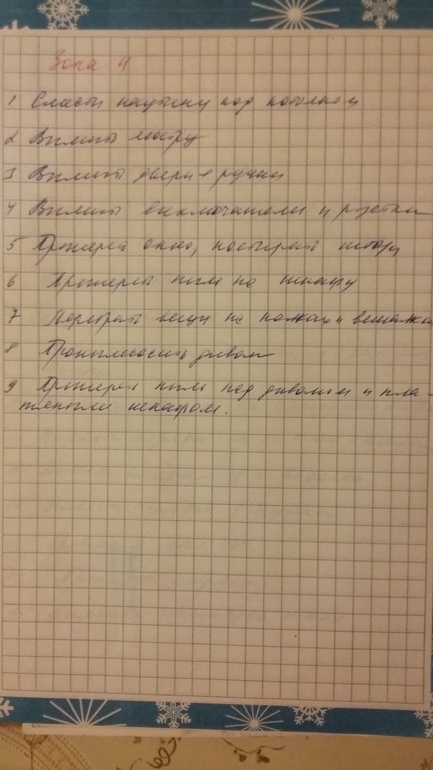 Зона 4
1 Снять паутину под потолком
2 Вымыть люстру
3 Вымыть дверь и ручки
4 Вымыть выключатели и розетки
5 Протереть окно, постирать
6 Протереть пыль на шкафу
7 Перебрать вещи на полках и вешалках
8 Пропылесосить диван
9 Протереть пыль под диваном и пла-
тяным шкафом.